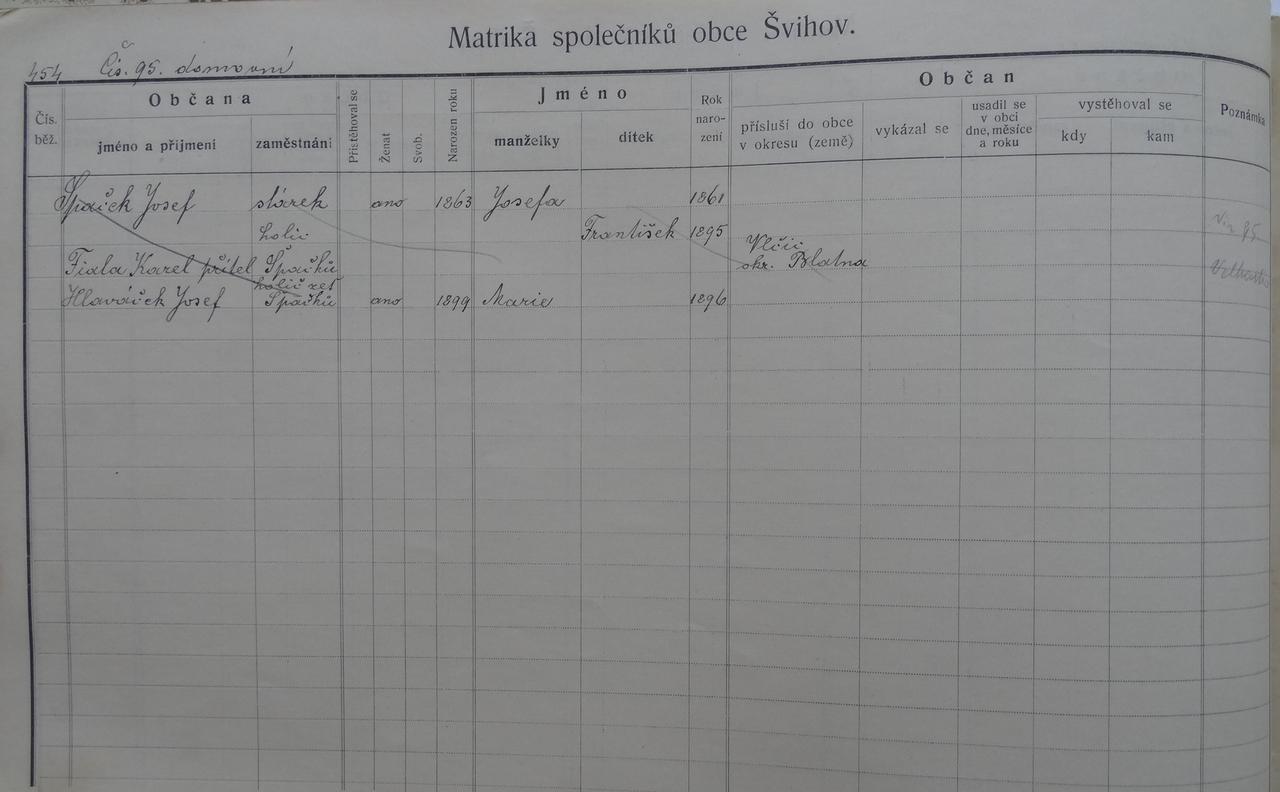 Matrika společníků obce Švihov.
454 Čís. 95. domovní
Občana Jméno Občan
Čís. běž. jméno a příjmení zaměstnání Přistěhoval se Ženat Svob. Narozen roku manželky dítek Rok naro- zení přísluší do obce v okresu (země) vykázal se usadil se v obci dne, měsíce a roku vystěhoval se kdy kam Poznámka
Špaček Josef stárek ano 1863 Josefa 1861
holič František 1895
Vlčic
Fiala Karel přítel Špačků okr. Blatna
holič zeť
Hlaváček Josef Špačků ano 1899 Marie 1896